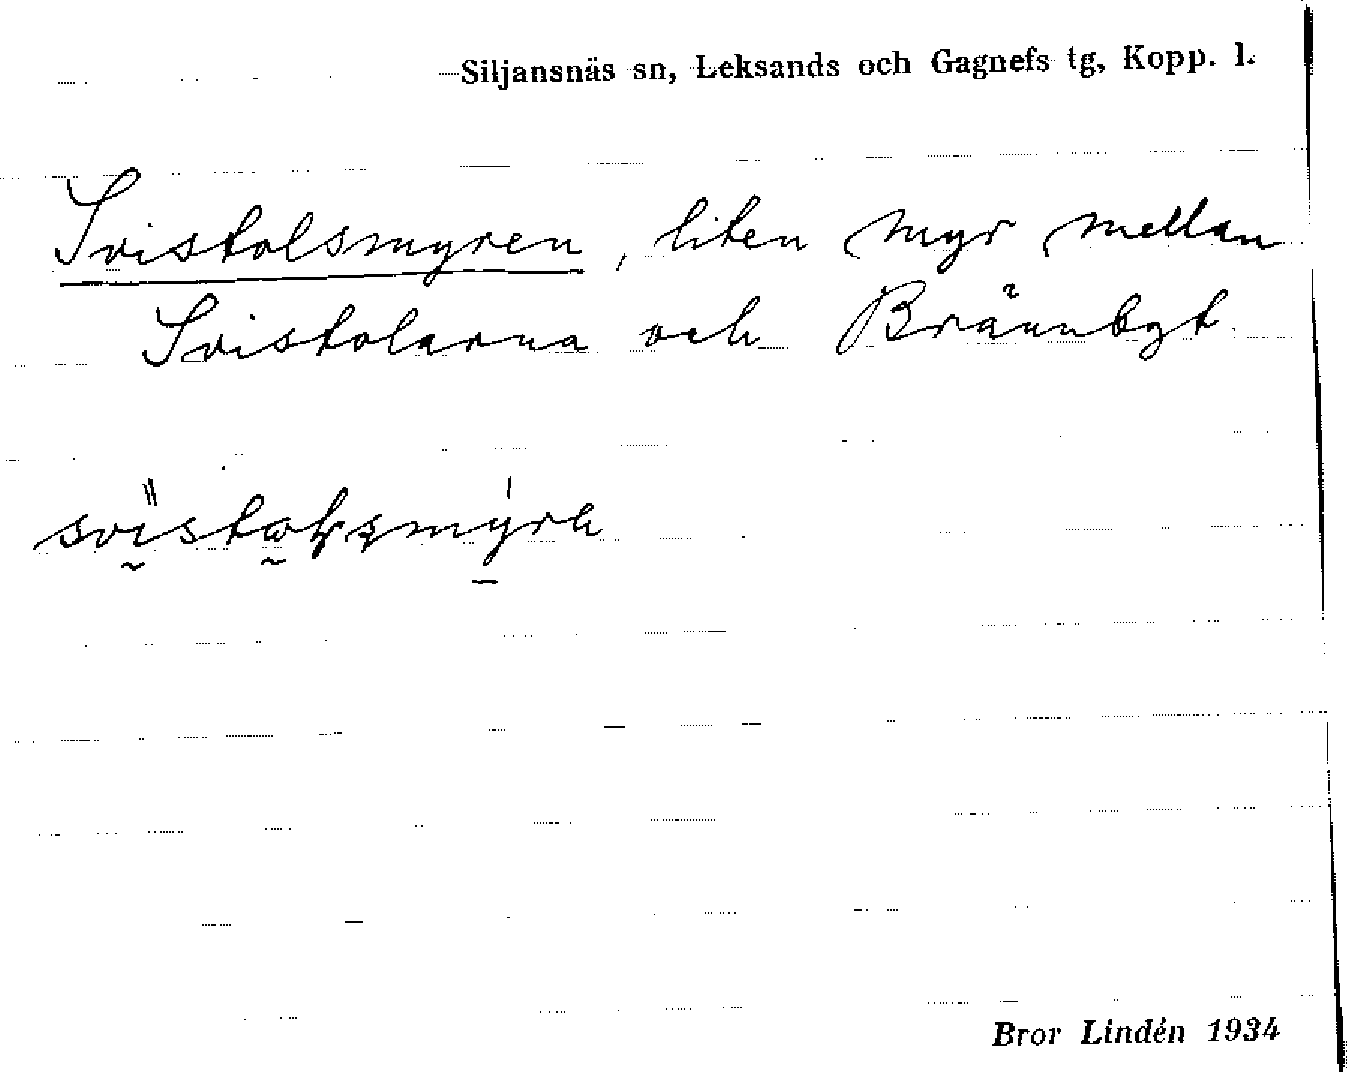 Siljansnäs sn, Leksands och Gagnefs tg, Kopp. l.
Svistolsmyren, liten myr mellan
Svistolarna och Brännbgt
Bror Lindén 1934